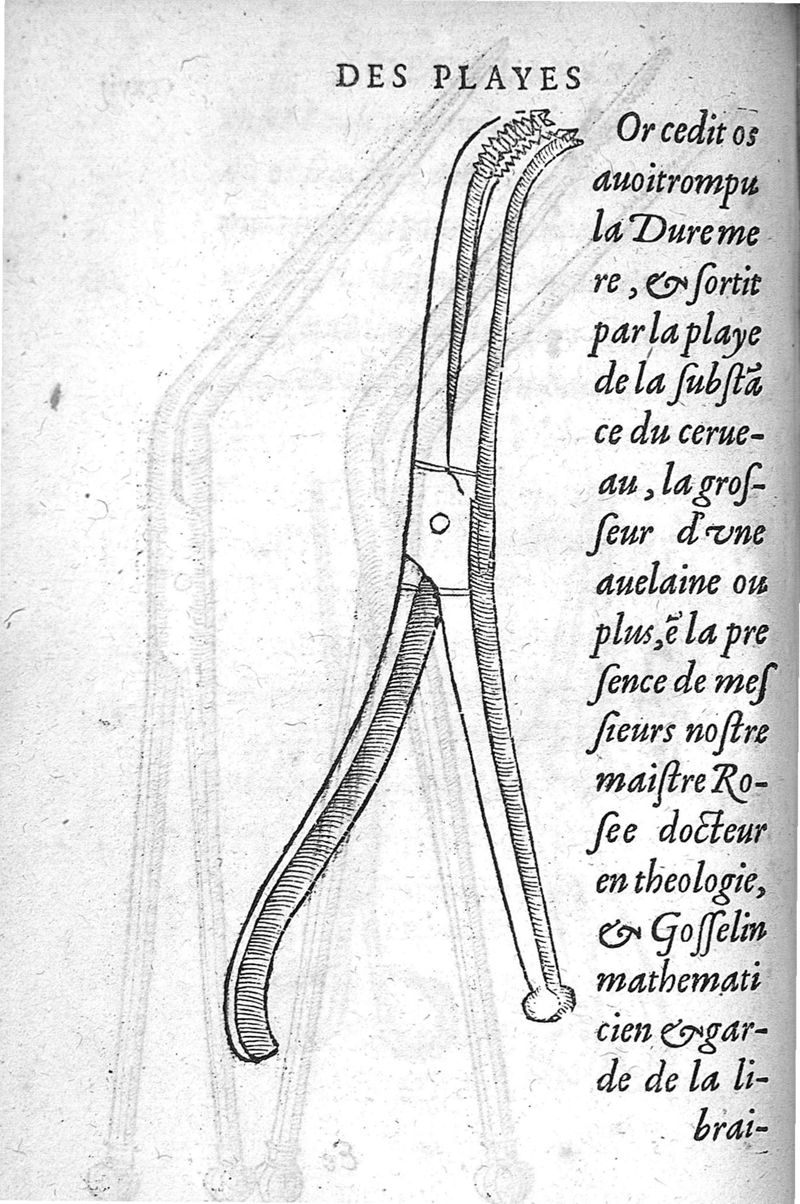 DES PLAYES
Or cedit os
auoit rompu
la Dureme
re, & ſortit
par la playe
de la ſubſtã
ce du cerue-
au, la groſ-
ſeur d'vne
auelaine ou
plus, ẽ la pre
ſence de meſ
ſieurs noſtre
maiſtre Ro-
ſee docteur
en theologie,
& Goſſelin
mathemati
cien & gar-
de de la li-
brai-